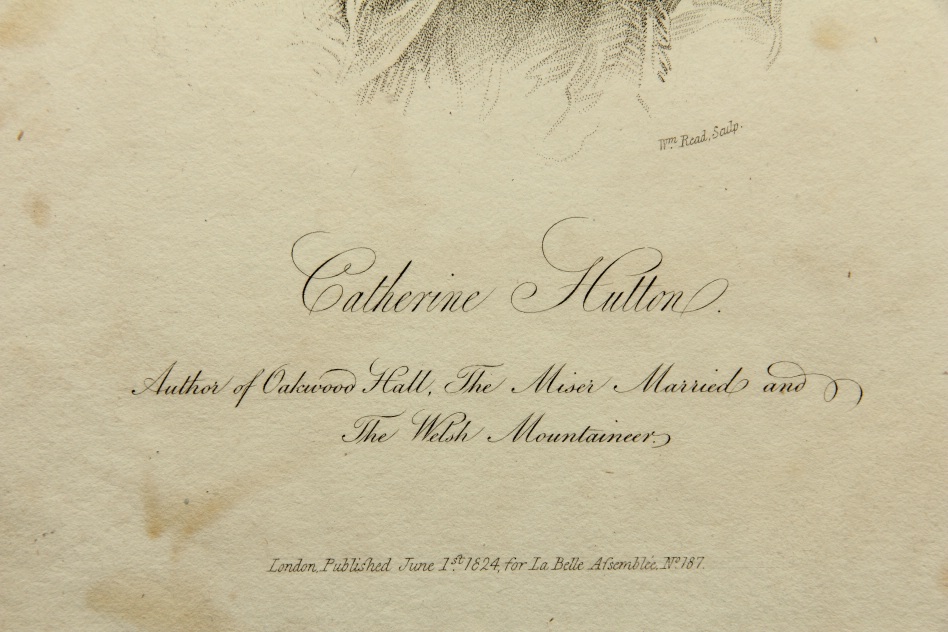 Wm. Read, Sculp.
Catherine Hutton.
Author of Oakwood Hall, The Miser Married and
The Welsh Mountaineer.
London, Publiſhed June 1.st 1824, for La Belle Aſsemblée, No. 187.